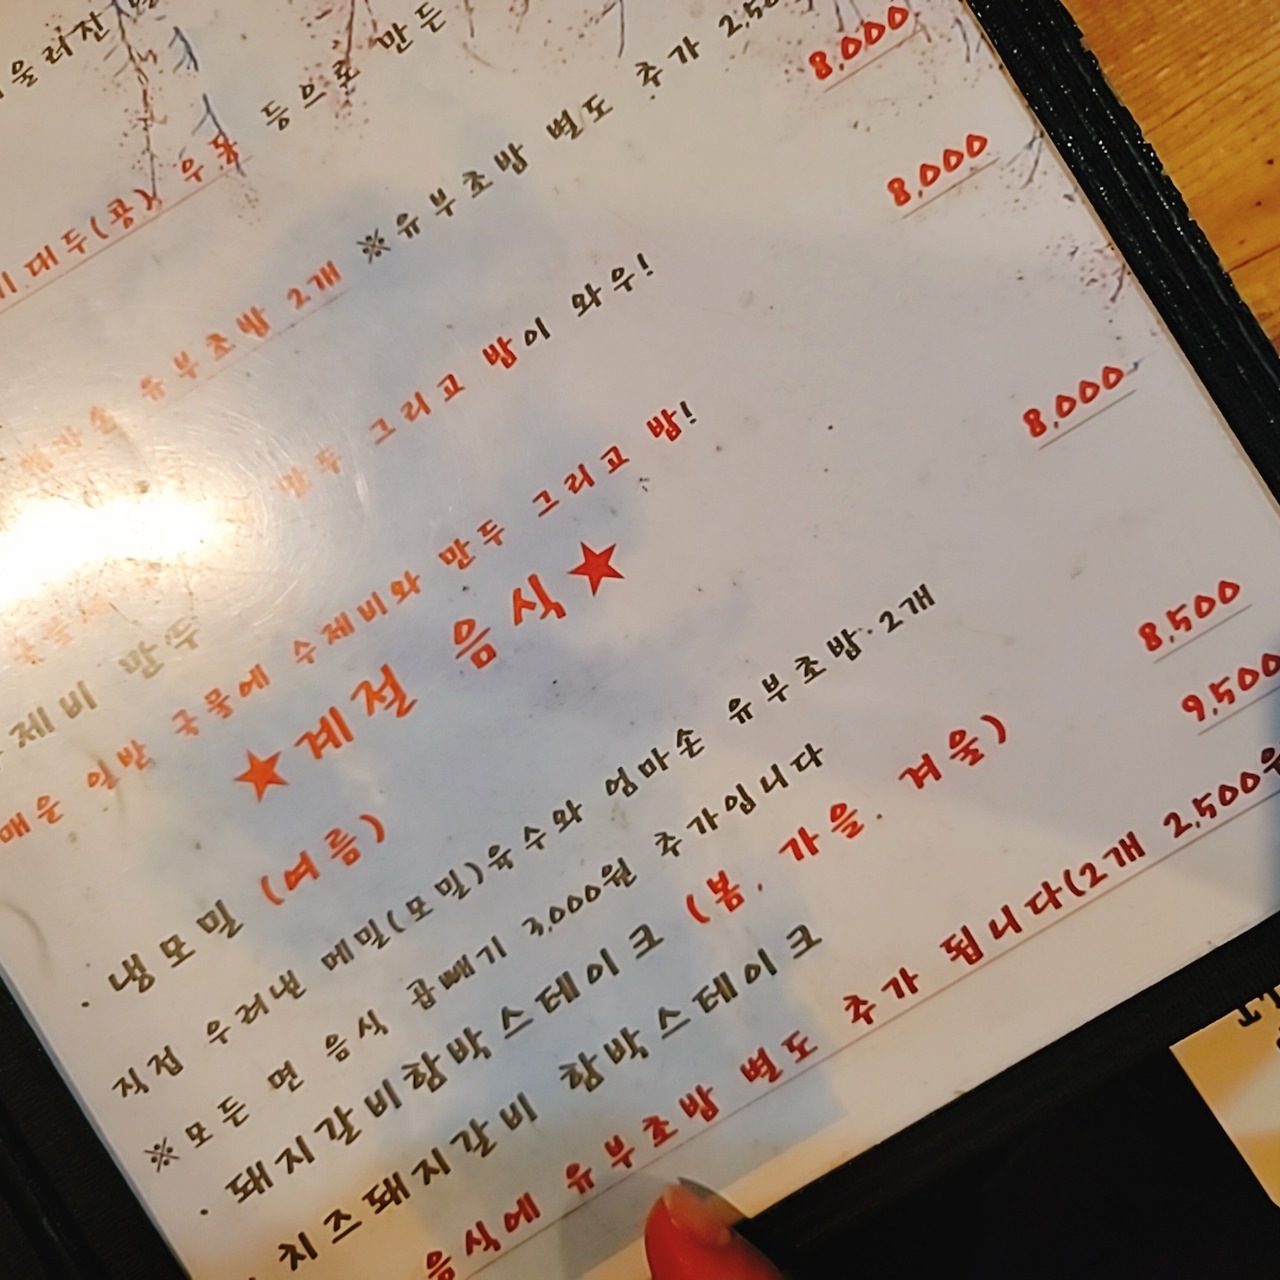 만든
등으로
8,000
대두(콩) 우동
유부초밥 2개 ※유부초밥 별도 추가
8,000
만두 그리고 밥이 와우!
제비 만두
8,000
매운 일반 국물에 수제비와 만두 그리고 밥!
★계절 음식★
· 냉모밀 (여름)
8,500
직접 우려낸 메밀(모밀)육수와 엄마손 유부초밥·2개
※모든 면 음식 곱빼기 3,000원 추가입니다
· 돼지갈비함박스테이크 (봄. 가을. 겨울)
8,500
치즈돼지갈비 함박스테이크
9,500
음식에 유부초밥 별도 추가 됩니다(2개 2,500원